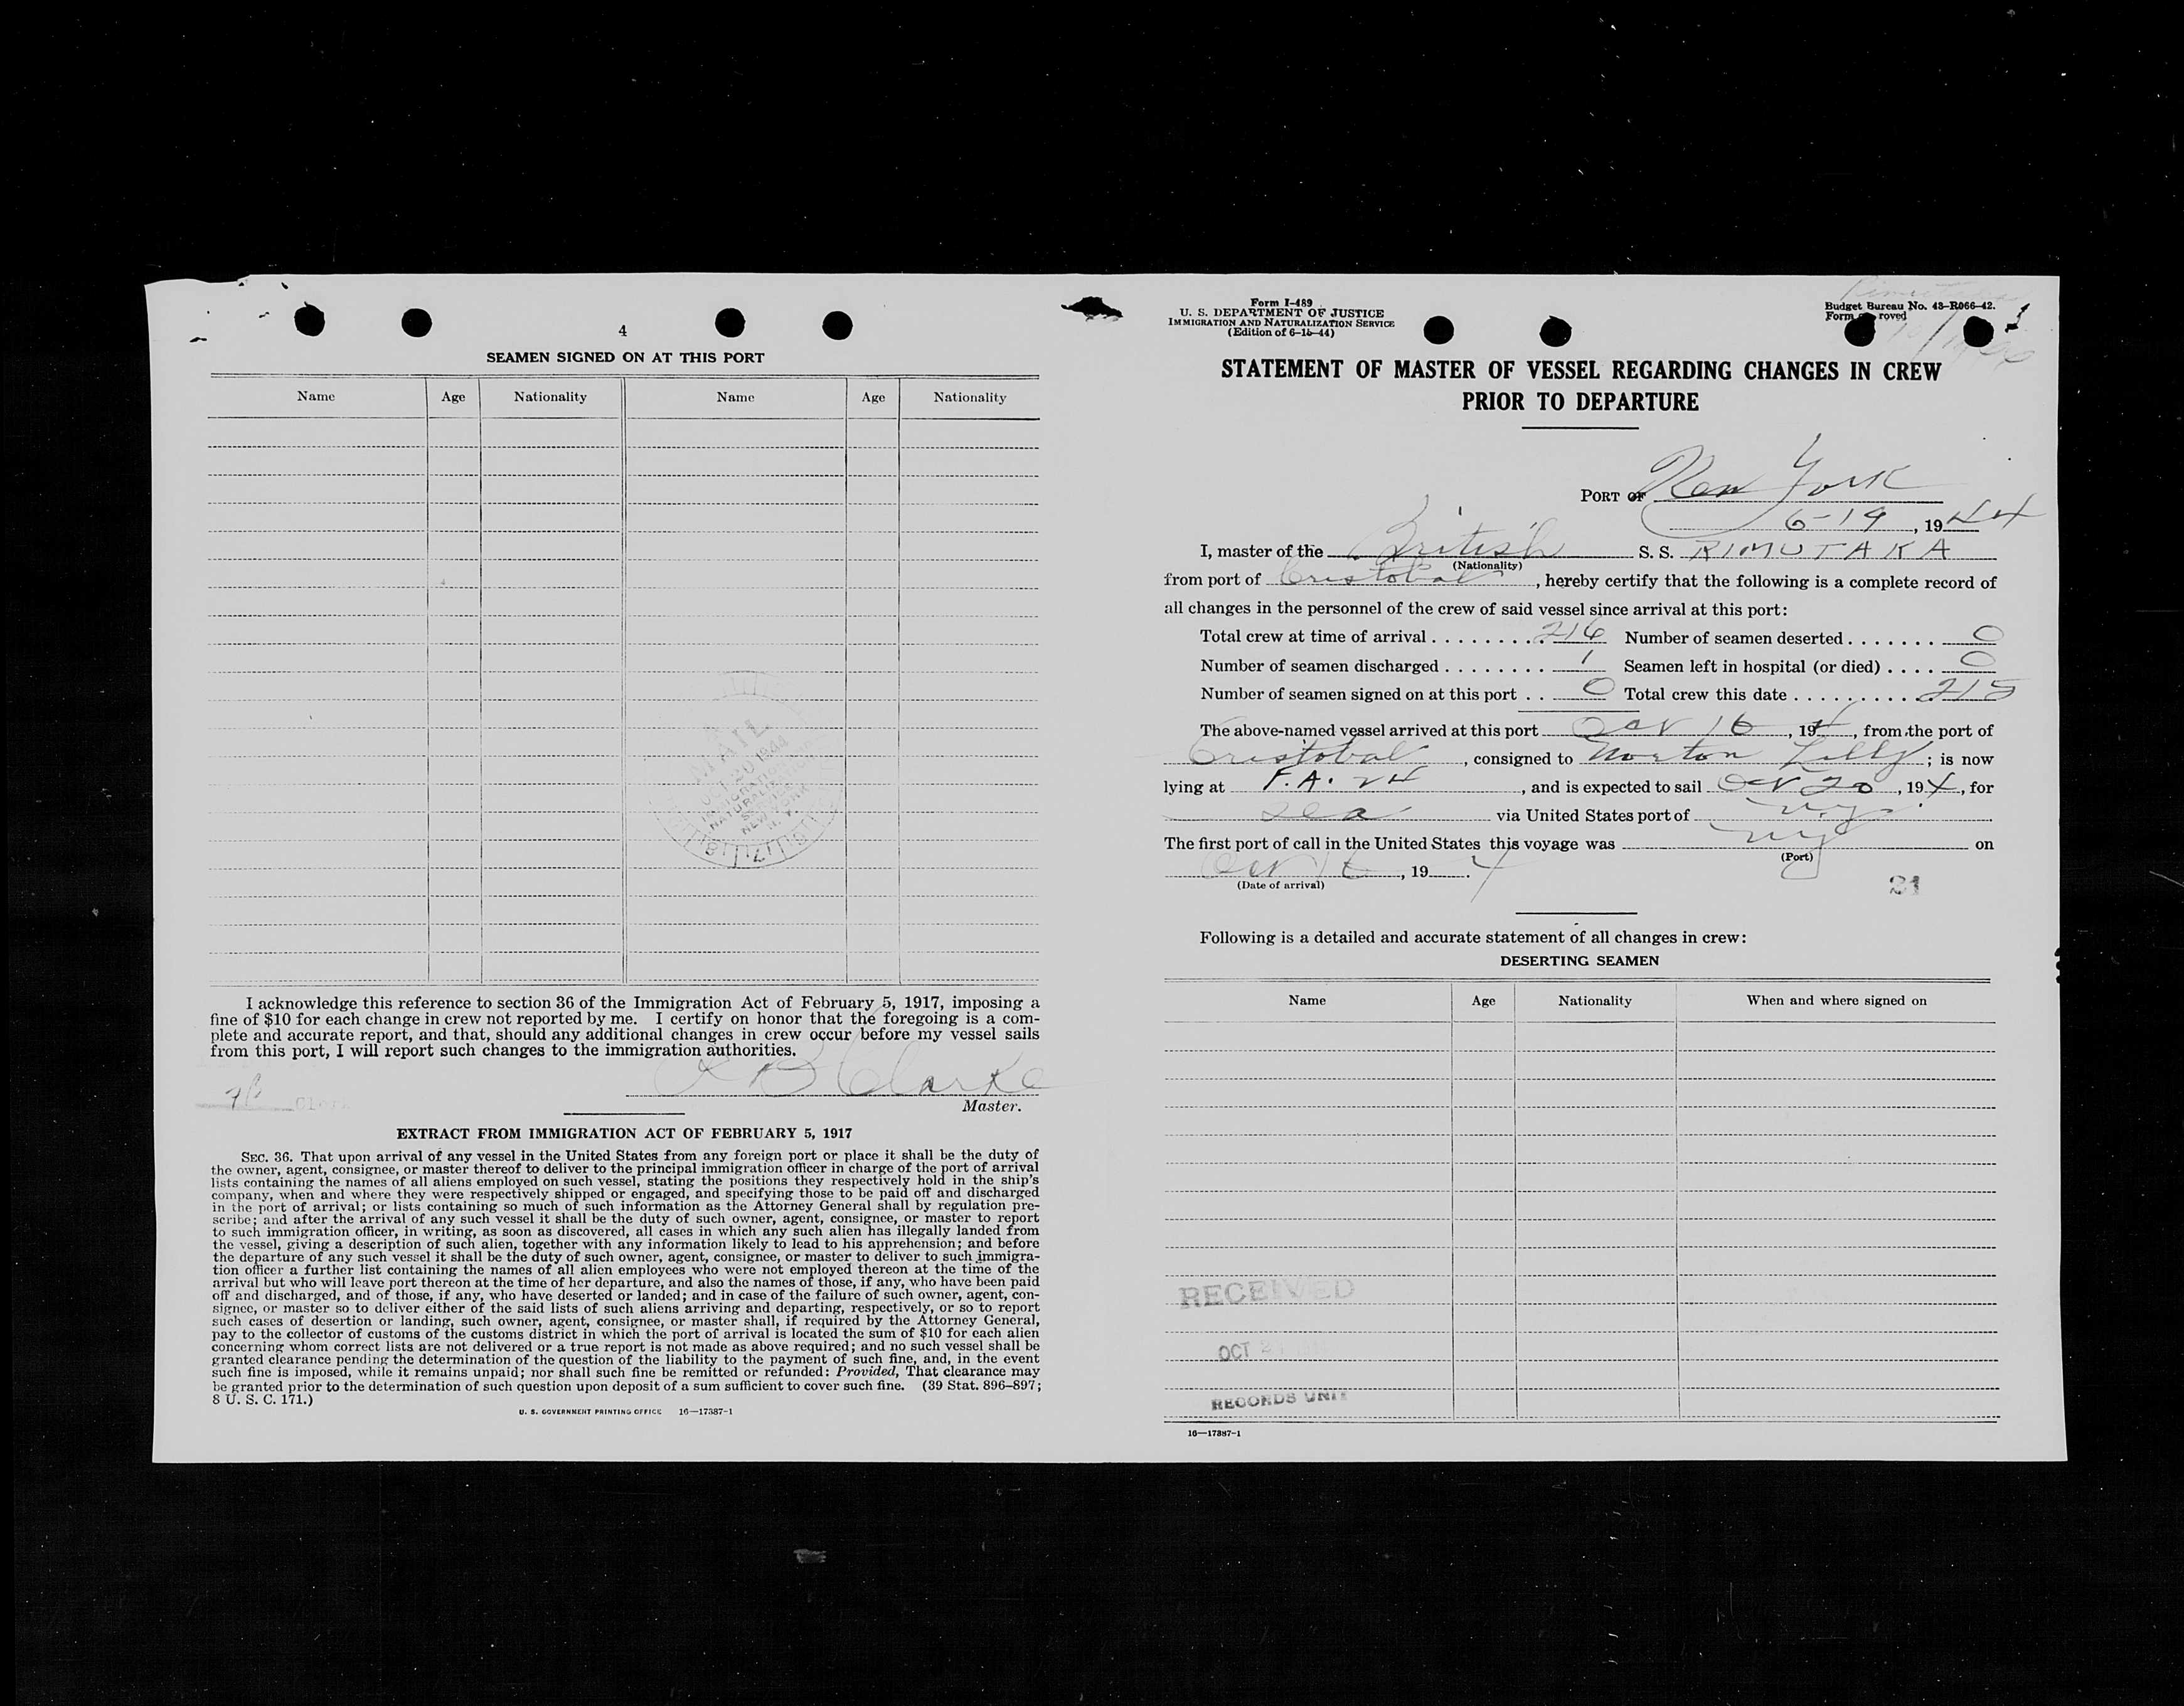 4
SEAMEN SIGNED ON AT THIS PORT
Name Age Nationality Name Age Nationality
MAIL
OCT 20 1944
IMMIGRATION
NATURALIZATION
SERVICE
NEW YORK
N. Y.
I acknowledge this reference to section 36 of the Immigration Act of February 5, 1917, imposing a
fine of $10 for each change in crew not reported by me. I certify on honor that the foregoing is a com-
plete and accurate report, and that, should any additional changes in crew occur before my vessel sails
from this port, I will report such changes to the immigration authorities.
B Clarke
Master.
EXTRACT FROM IMMIGRATION ACT OF FEBRUARY 5, 1917
SEC. 36. That upon arrival of any vessel in the United States from any foreign port or place it shall be the duty of
the owner, agent, consignee, or master thereof to deliver to the principal immigration officer in charge of the port of arrival
lists containing the names of all aliens employed on such vessel, stating the positions they respectively hold in the ship's
company, when and where they were respectively shipped or engaged, and specifying those to be paid off and discharged
in the port of arrival; or lists containing so much of such information as the Attorney General shall by regulation pre-
scribe; and after the arrival of any such vessel it shall be the duty of such owner, agent, consignee, or master to report
to such immigration officer, in writing, as soon as discovered, all cases in which any such alien has illegally landed from
the vessel, giving a description of such alien, together with any information likely to lead to his apprehension; and before
the departure of any such vessel it shall be the duty of such owner, agent, consignee, or master to deliver to such immigra-
tion officer a further list containing the names of all alien employees who were not employed thereon at the time of the
arrival but who will leave port thereon at the time of her departure, and also the names of those, if any, who have been paid
off and discharged, and of those, if any, who have deserted or landed; and in case of the failure of such owner, agent, con-
signee, or master so to deliver either of the said lists of such aliens arriving and departing, respectively, or so to report
such cases of desertion or landing, such owner, agent, consignee, or master shall, if required by the Attorney General,
pay to the collector of customs of the customs district in which the port of arrival is located the sum of $10 for each alien
concerning whom correct lists are not delivered or a true report is not made as above required; and no such vessel shall be
granted clearance pending the determination of the question of the liability to the payment of such fine, and, in the event
such fine is imposed, while it remains unpaid; nor shall such fine be remitted or refunded: Provided, That clearance may
be granted prior to the determination of such question upon deposit of a sum sufficient to cover such fine. (39 Stat. 896–897;
8 U. S. C. 171.)
U. S. GOVERNMENT PRINTING OFFICE 16—17387-1
Form I-489
U. S. DEPARTMENT OF JUSTICE
IMMIGRATION AND NATURALIZATION SERVICE
(Edition of 6-15-44)
Budget Bureau No. 43-R066-42.
Form roved
STATEMENT OF MASTER OF VESSEL REGARDING CHANGES IN CREW
PRIOR TO DEPARTURE
PORT OF New York
6-19, 1944
I, master of the British S. S. RIMUTAKA
(Nationality)
from port of Cristobal, hereby certify that the following is a complete record of
all changes in the personnel of the crew of said vessel since arrival at this port:
Total crew at time of arrival ........ 216 Number of seamen deserted ....... 0
Number of seamen discharged ........ 1 Seamen left in hospital (or died) .... 0
Number of seamen signed on at this port .. 0 Total crew this date .......... 215
The above-named vessel arrived at this port Oct 16, 194, from the port of
Cristobal, consigned to Norton Lilly; is now
lying at F.A. 24, and is expected to sail Oct 20, 194, for
sea via United States port of NY
The first port of call in the United States this voyage was NY on
(Port)
Oct 16, 19 4.
(Date of arrival)
21
Following is a detailed and accurate statement of all changes in crew:
DESERTING SEAMEN
Name Age Nationality When and where signed on
RECEIVED
OCT
RECORDS UNIT
16—17387-1